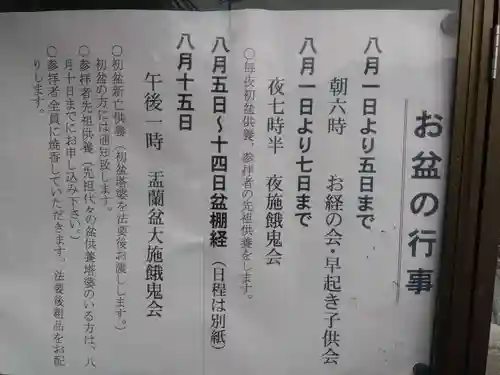 お盆の行事
八月一日より五日まで
朝六時 お経の会・早起き子供会
八月一日より七日まで
夜七時半 夜施餓鬼会
○毎夜初盆供養、参拝者の先祖供養をします。
八月五日〜十四日盆棚経（日程は別紙）
八月十五日
午後一時 盂蘭盆大施餓鬼会
○初盆新亡供養（初盆塔婆を法要後お渡しします。）
初盆の方には通知致します。
○参拝者先祖供養（先祖代々の盆供養塔婆のいる方は、八
月十日までにお申し込み下さい。）
○参拝者全員に焼香していただきます。法要後粗品をお配
りします。